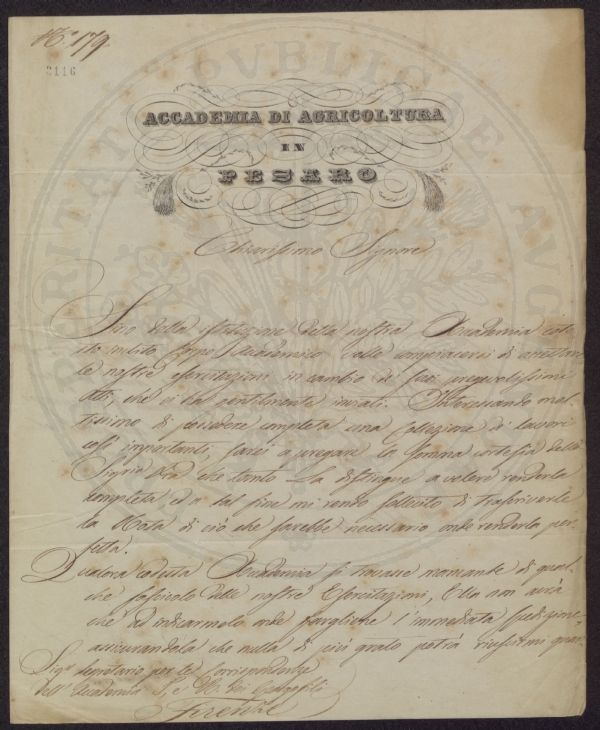 N.° 179.
2116
ACCADEMIA DI AGRICOLTURA
IN
PESARO
Chiarissimo Signore
Sino dalla istituzione della nostra Accademia cote
sto inclito Corpo Accademico volle compiacersi di accettare
le nostre esercitazioni in cambio di suoi pregevolissimi
Atti, che ci ha gentilmente inviati. Interessando mol
tissimo di possedere completa una Collezione di lavori
così importanti, farei a pregare la somma cortesia della
Sig.ria V.ra che tanto La distingue a volere renderla
completa ed a tal fine mi rendo sollecito di trascriverle
la Nota di ciò che sarebbe necessario onde renderla per
fetta.
Qualora codesta Accademia si trovasse mancante di qual
che fascicolo delle nostre Esercitazioni, Ella non avrà
che ad indicarmelo onde fargliene l'immediata spedizione,
assicurandola che nulla di più grato potrà riuscirmi quan
Sig.r Segretario per le Corrispondenze
dell'Accademia I. e R. dei Georgofili
Firenze